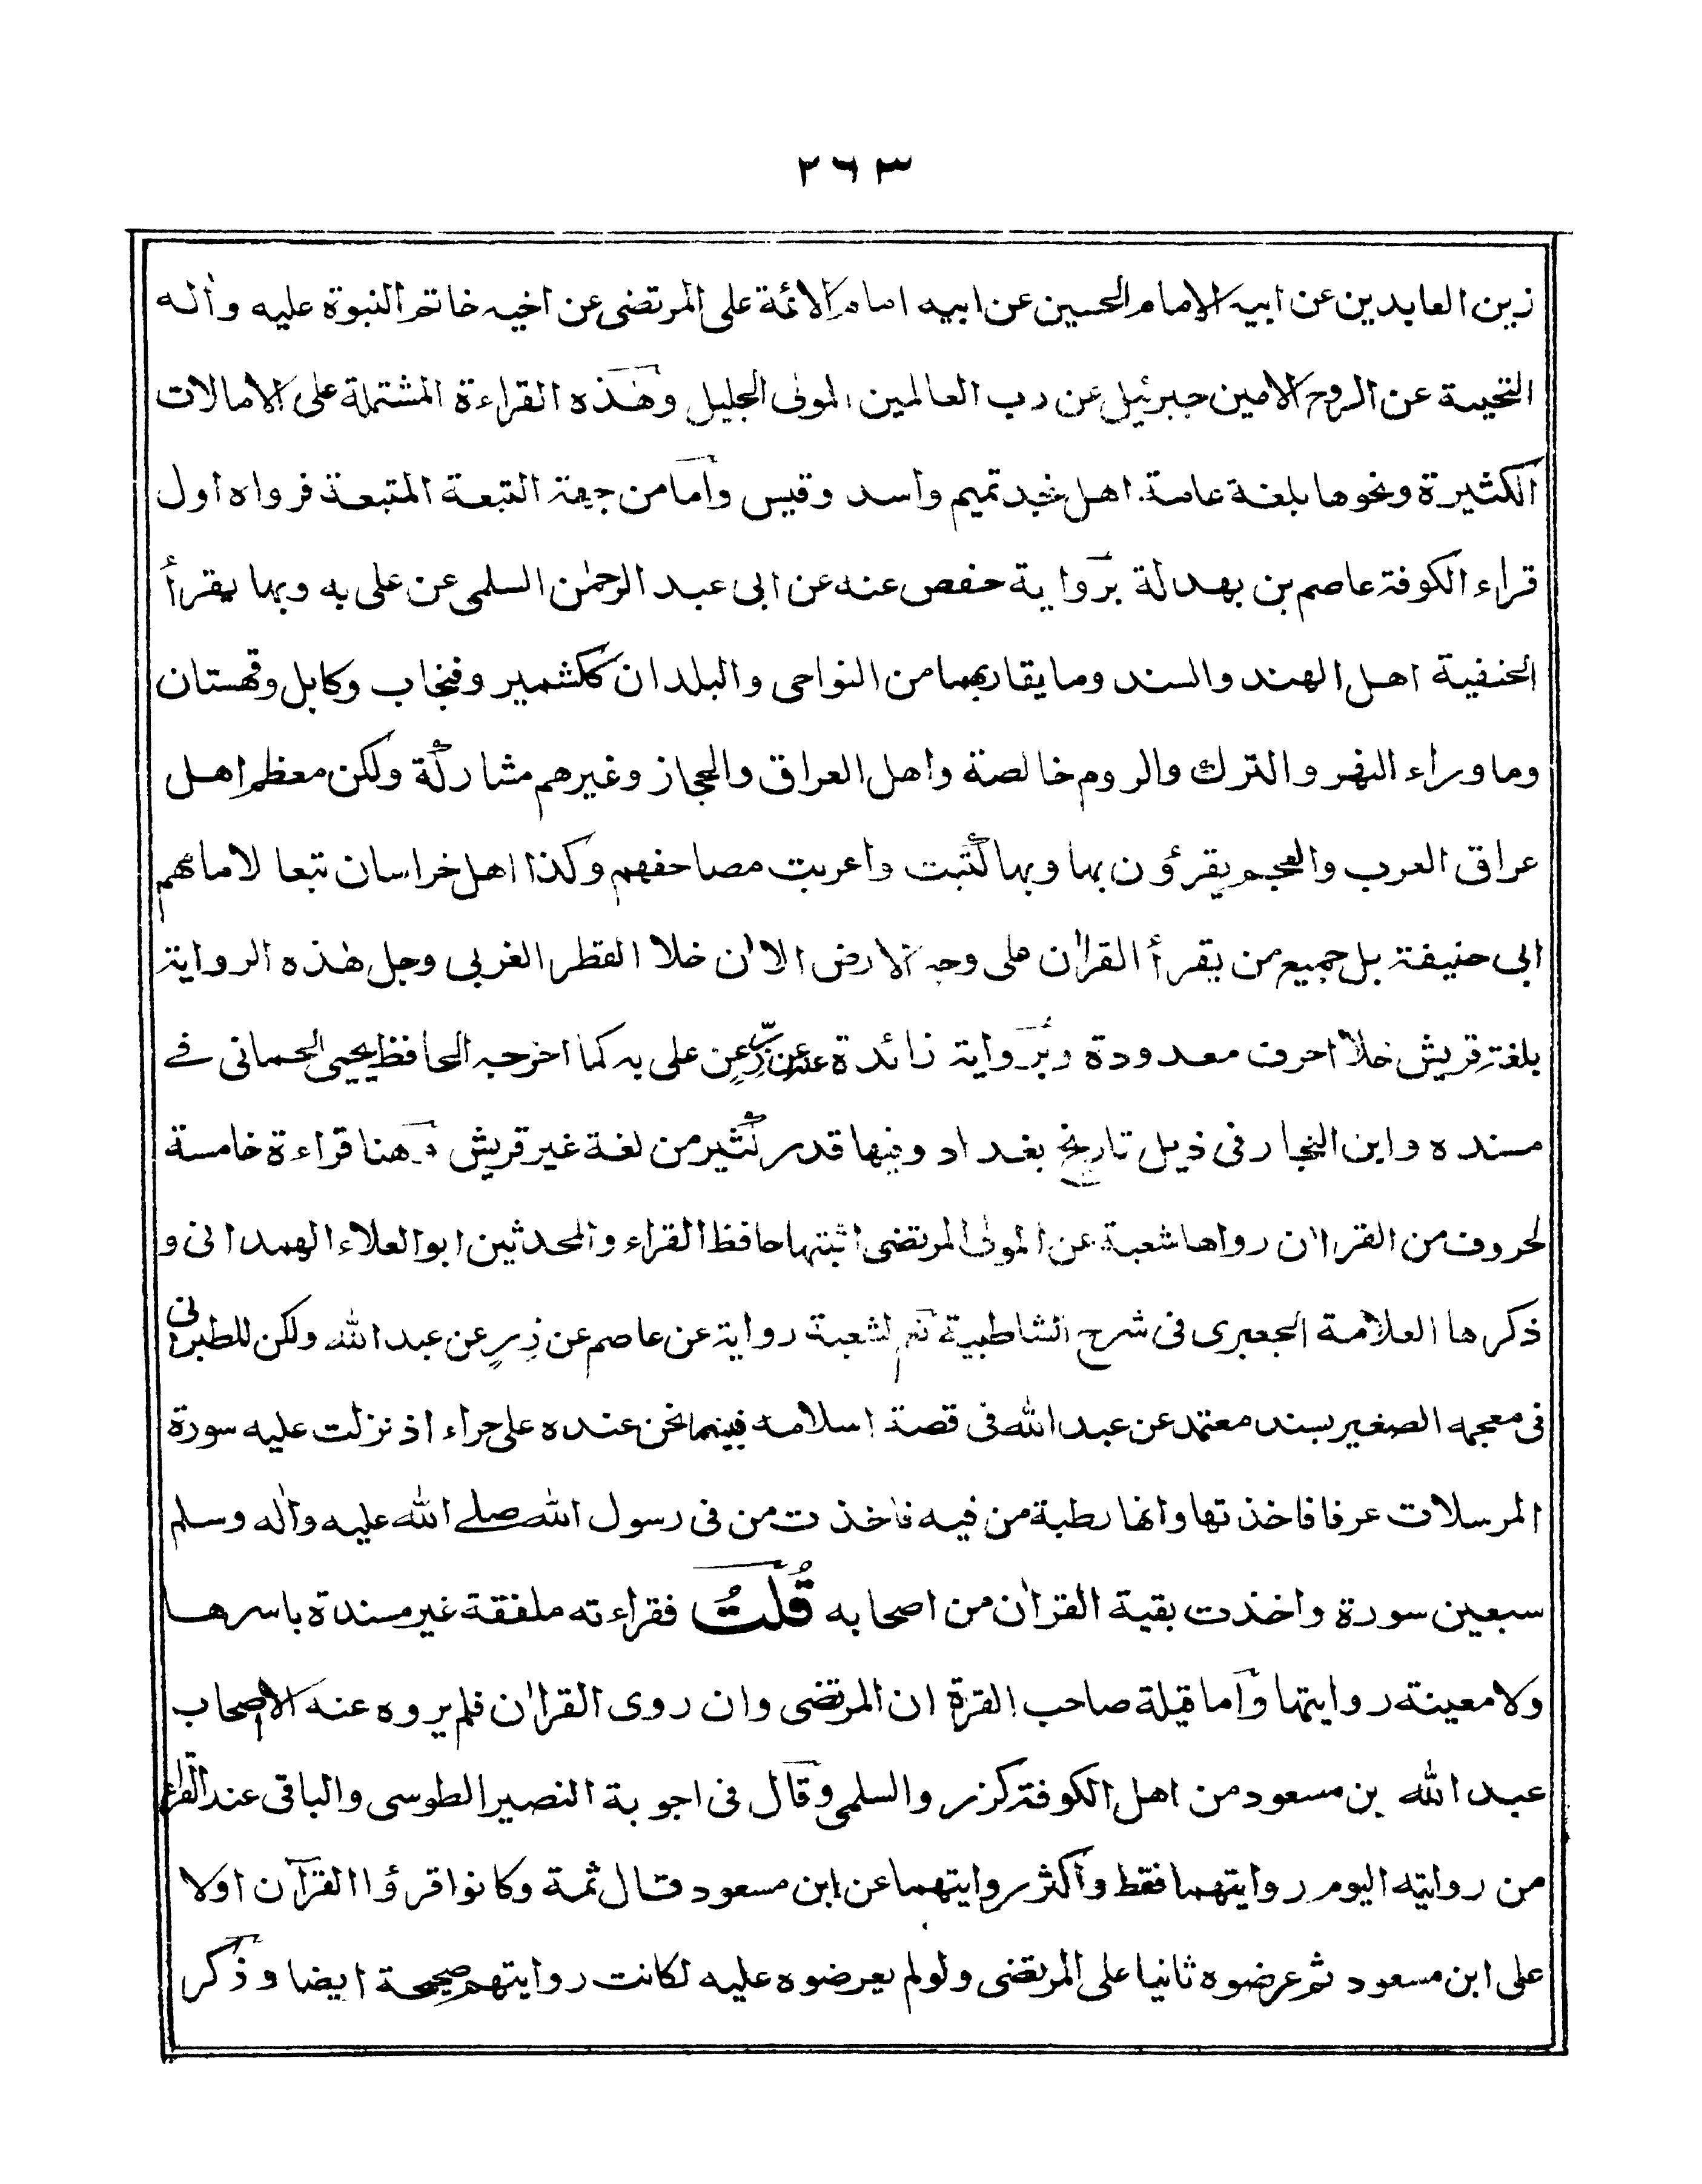 ٢٦٣
زين العابدين عن ابيه الامام الحسين عن ابيه امام الائمة على المرتضى عن اخيه خاتم النبوة عليه وأله
التحية عن الروح الامين جبرئيل عن رب العالمين المولى الجليل وهذه القراءة المشتملة على الامالات
الكثيرة ونحوها بلغة عامة اهل نجد تميم واسد وقيس وأما من جهة التبعة المتبعة فرواه اول
قراء الكوفة عاصم بن بهدلة برواية حفص عنه عن ابى عبد الرحمٰن السلمى عن على به وبها يقرأ
الحنفية اهل الهند والسند وما يقاربهما من النواحى والبلدان ككشمير وفنجاب وكابل وقهستان
وما وراء النهر والترك والروم خالصة واهل العراق والحجاز وغيرهم مشاركة ولكن معظم اهل
عراق العرب والعجم يقرؤن بها وبها كتبت واعربت مصاحفهم وكذا اهل خراسان تبعا لامامهم
ابى حنيفة بل جميع من يقرأ القرأن على وجه الارض الأن خلا القطر الغربى وجل هٰذه الرواية
بلغة قريش خلا احرف معدودة وبرواية زائدة عنه عن زر عن على به كما اخرجه الحافظ يحيى الحمانى فے
مسنده وابن النجار فى ذيل تاريخ بغداد وفيها قدر كثير من لغة غير قريش وهنا قراءة خامسة
لحروف من القرأن رواها شعبة عن المولى المرتضى اثبتها حافظ القراء والمحدثين ابو العلاء الهمدانى و
ذكرها العلامة الجعبرى فى شرح الشاطبية ثم لشعبة رواية عن عاصم عن زِرٍ عن عبد الله ولكن للطبرانى
فى معجمه الصغير بسند معتمد عن عبد الله فى قصة اسلامه فبينما نحن عنده على حراء اذ نزلت عليه سورة
المرسلات عرفا فاخذتها وانها رطبة من فيه فاخذت من فى رسول الله صلے الله عليه وأله وسلم
سبعين سورة واخذت بقية القرأن من اصحابه قُلْتُ فقراءته ملفقة غير مسندة باسرها
ولا معينة روايتها وأما قيلة صاحب القرة ان المرتضى وان روى القرأن فلم يروه عنه الا اصحاب
عبد الله بن مسعود من اهل الكوفة كزر والسلمى وقال فى اجوبة النصير الطوسى والباقى عند القراء
من روايته اليوم روايتهما فقط وأكثر روايتهما عن ابن مسعود قال ثمة وكانوا قرؤا القرآن اولا
على ابن مسعود ثم عرضوه ثانيا على المرتضى ولو لم يعرضوه عليه لكانت روايتهم صحيحة ايضا وذكر